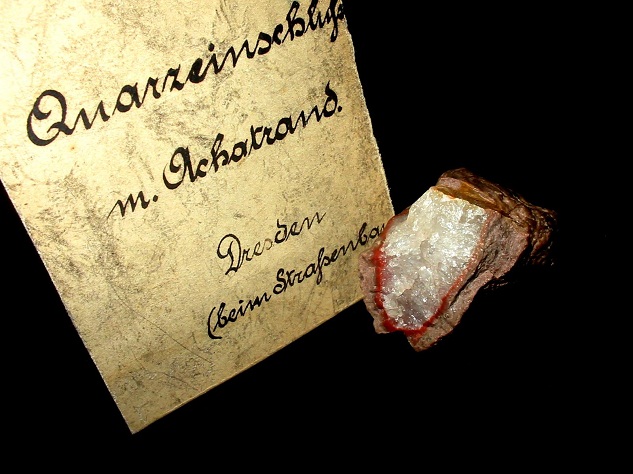 Quarzeinschluß
m. Achatrand.
Dresden
(beim Straßenba